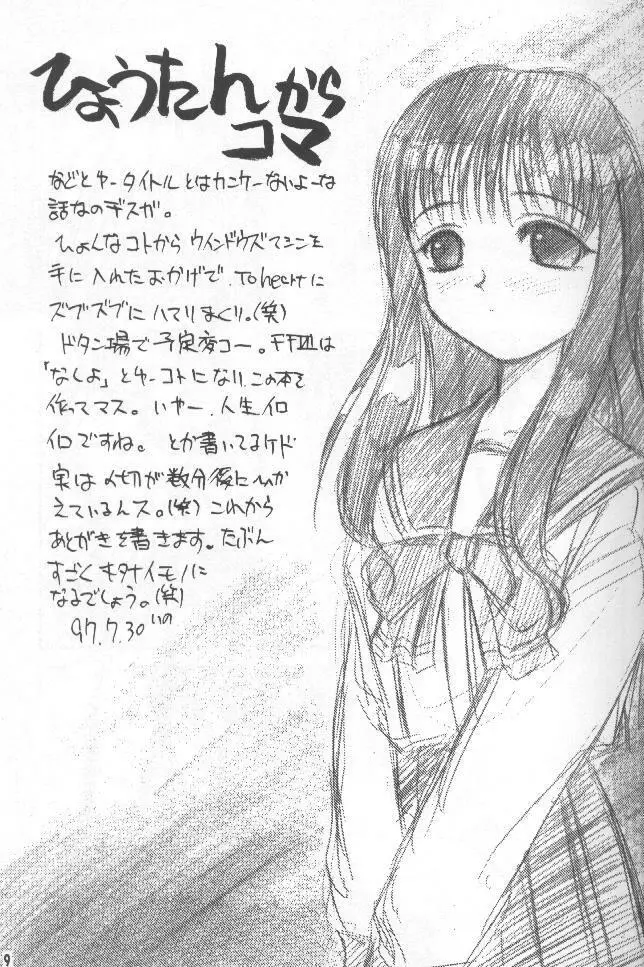 ひょうたんから
コマ
などとゆータイトルとはカンケーないよーな
話なのデスガ。
ひょんなコトからウインドウズマシンを
手に入れたおかげで、To heartに
ズブズブにハマりまくり。(笑)
ドタン場で予定変コー。FFⅦは
「なしよ」とゆーコトになり、この本を
作ってマス。いやー、人生イロ
イロですね。とか書いてるケド
実は〆切が数分後にひか
えているんス。(笑)これから
あとがきを書きます。たぶん
すごくキタナイモノに
なるでしょう。(笑)
97.7.30 いの
9